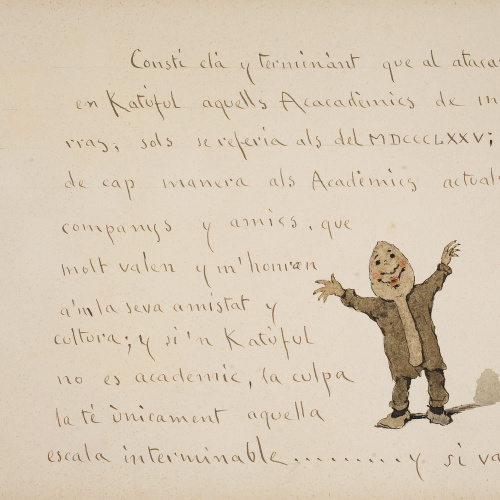 Consti clà y terminànt que al ataca
en Katúful aquells Acacadèmics de
rras, sols se referia als del MDCCCLXXV;
de cap manera als Acadèmics actuals
companys y amics, que
molt valen y m'honran
a'mla seva amistat y
cultura; y si 'n Katúful
no es academic, la culpa
la té ùnicament aquella
escala interminable.........y si va